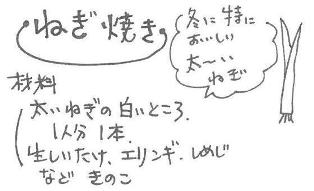 ねぎ焼き
冬に特に
おいしい
太〜い
ねぎ
材料
太いねぎの白いところ.
1人分 1本.
生しいたけ、エリンギ.しめじ
など きのこ